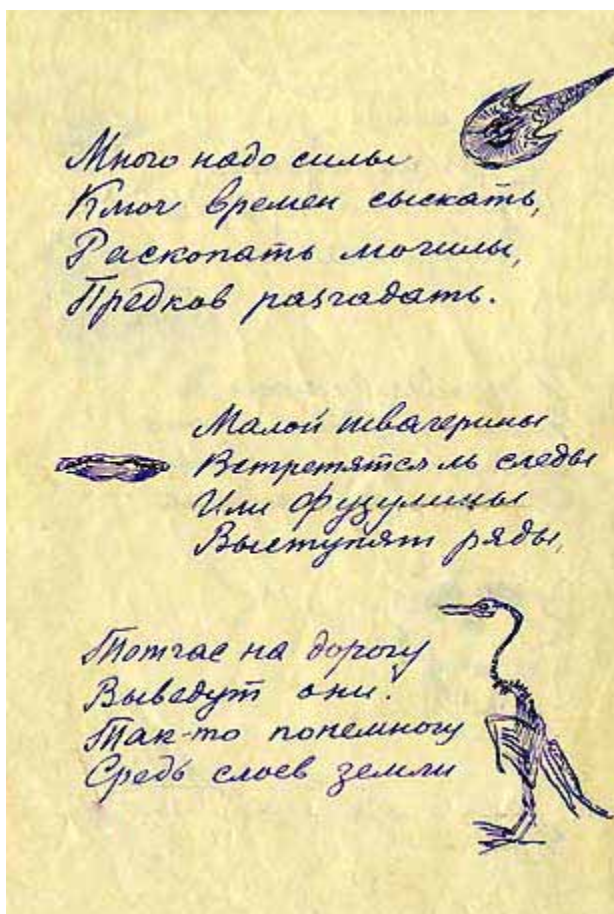 Много надо силы
Ключ времен сыскать,
Раскопать могилы,
Предков разгадать.
Малой швагерины
Встретятся ль следы
Или Фузулины
Выступят ряды,
Тотчас на дорогу
Выведут они.
Так-то понемногу
Средь слоев земли